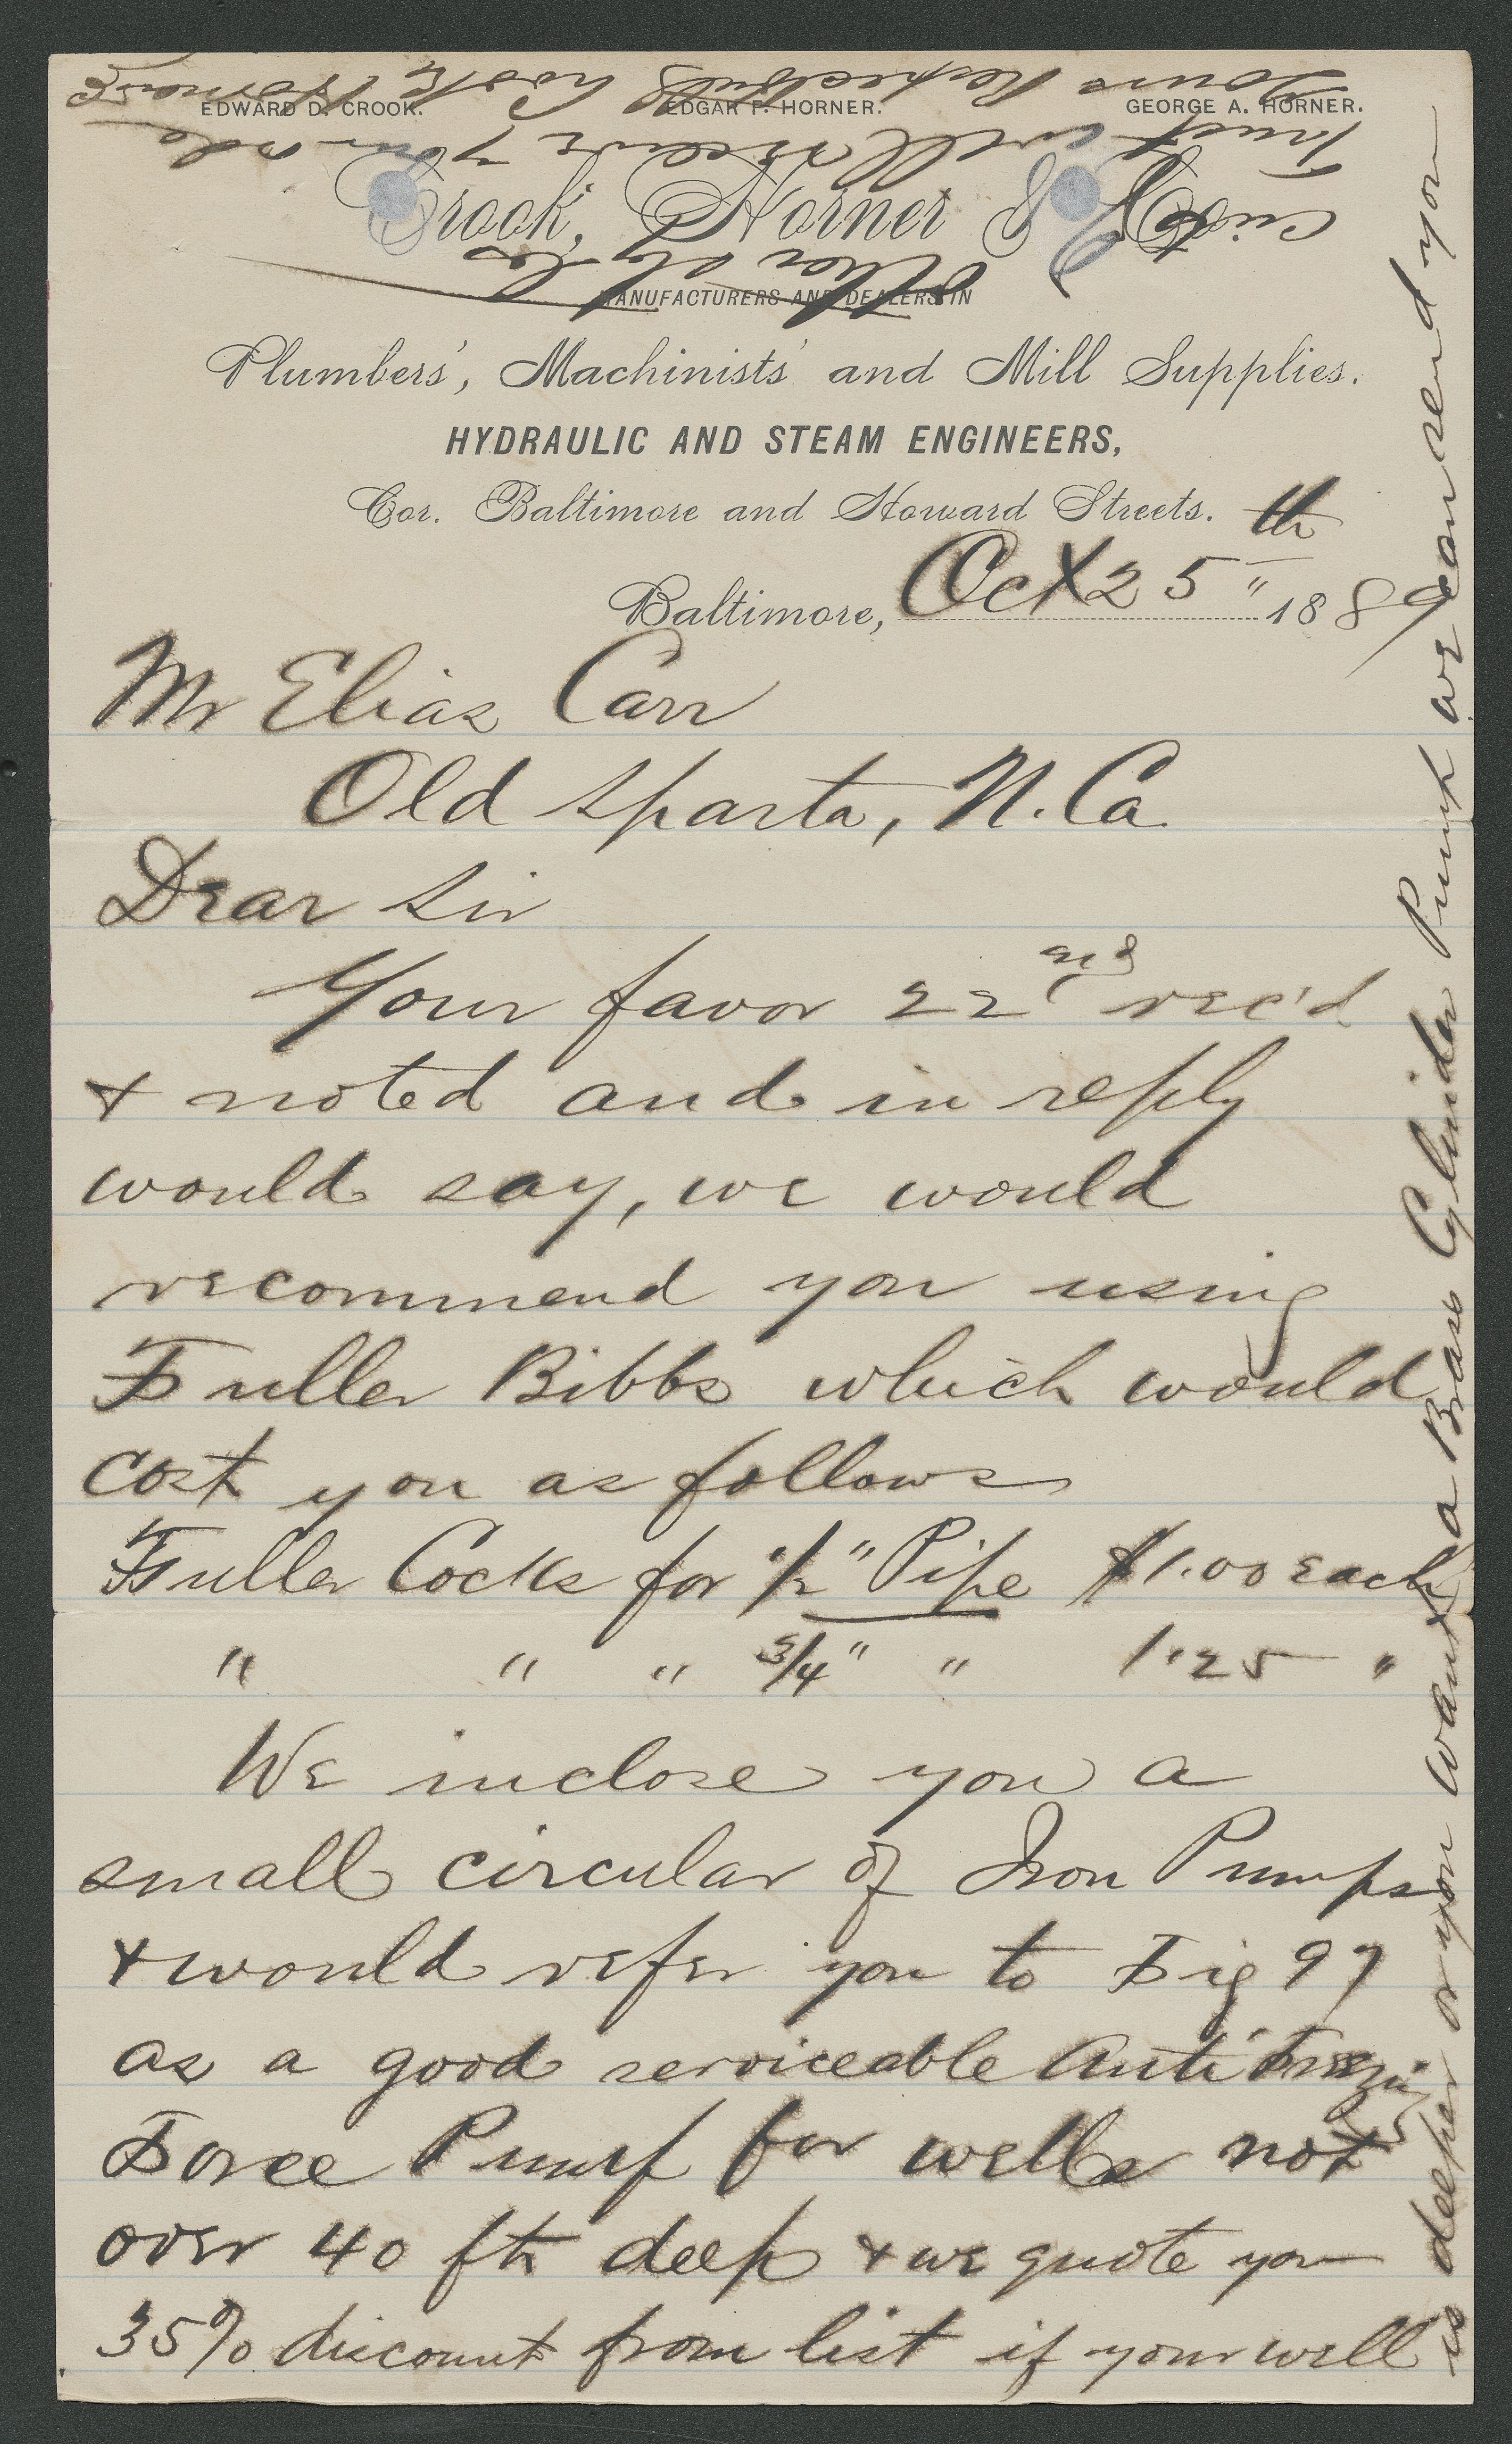 EDWARD D. CROOK. EDGAR F. HORNER. GEORGE A. HORNER.
Crook, Horner & Co
MANUFACTURERS AND DEALERS IN
Plumbers', Machinists' and Mill Supplies.
HYDRAULIC AND STEAM ENGINEERS,
Cor. Baltimore and Howard Streets.
Baltimore, Oct 25th " 1889
Mr Elias Carr
Old Sparta, N. Ca
Dear Sir
Your favor 22nd rec'd
& noted and in reply
would say, we would
recommend you using
Fuller Bibbs which would
cost you as follows
Fuller Cocks for 1/2" Pipe $1.00 each
" " " 3/4" " 1.25 "
We inclose you a
small circular of Iron Pumps
& would refer you to Fig 97
as a good serviceable Anti freezing
Force Pump for wells not
over 40 ft deep & we quote you
35% discount from list if your well
is deeper or you want a Brass Cylinder Pump we can send you
other styles
Trust will receive your order
Yours Respectfully
Crook Horner & Co